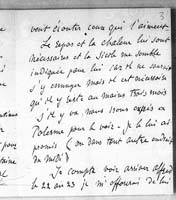 vont écouter ceux qui l'aiment.
Le repos et la chaleur lui sont
nécessaires et la Sicile me semble
indiquée pour lui car il ne saurait
s'y ennuyer mais il est nécessaire
qu'il y reste au moins trois mois
s'il y va, nous irons exprès à
Palerme pour le voir. Je le lui ai
promis (ou dans tout autre endroit
du midi)
Je compte voir arriver Alfred
le 22 au 23 je m'efforcerai de lui